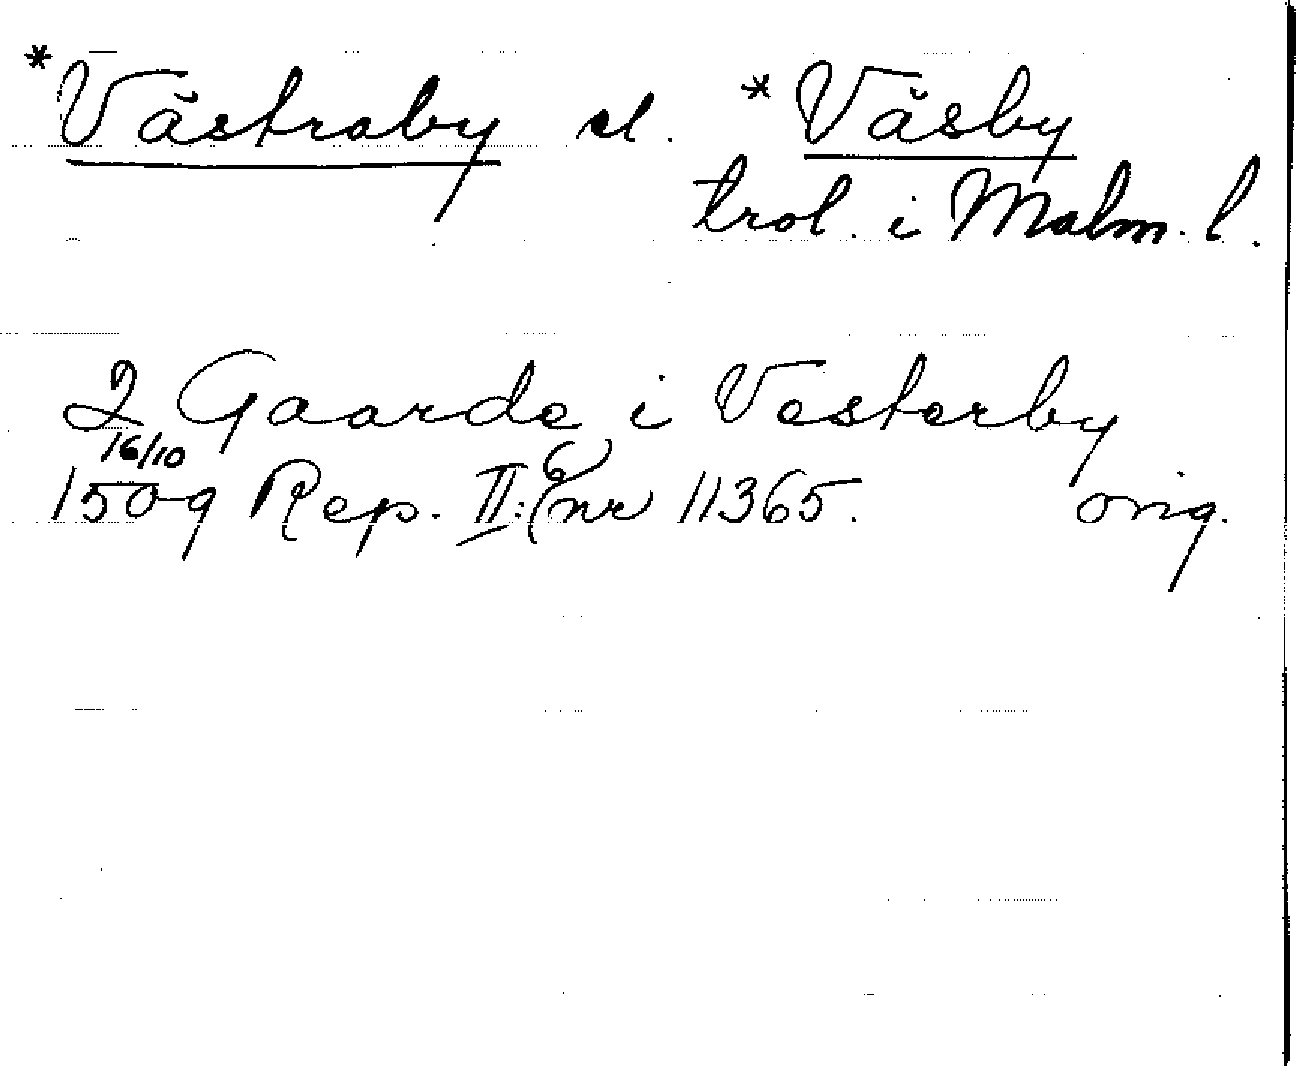 *Västraby el. *Väsby
trol. i Malm. l.
2 Gaarde i Vesterby
16/10
1509 Rep. II:6 nr 11365. orig.